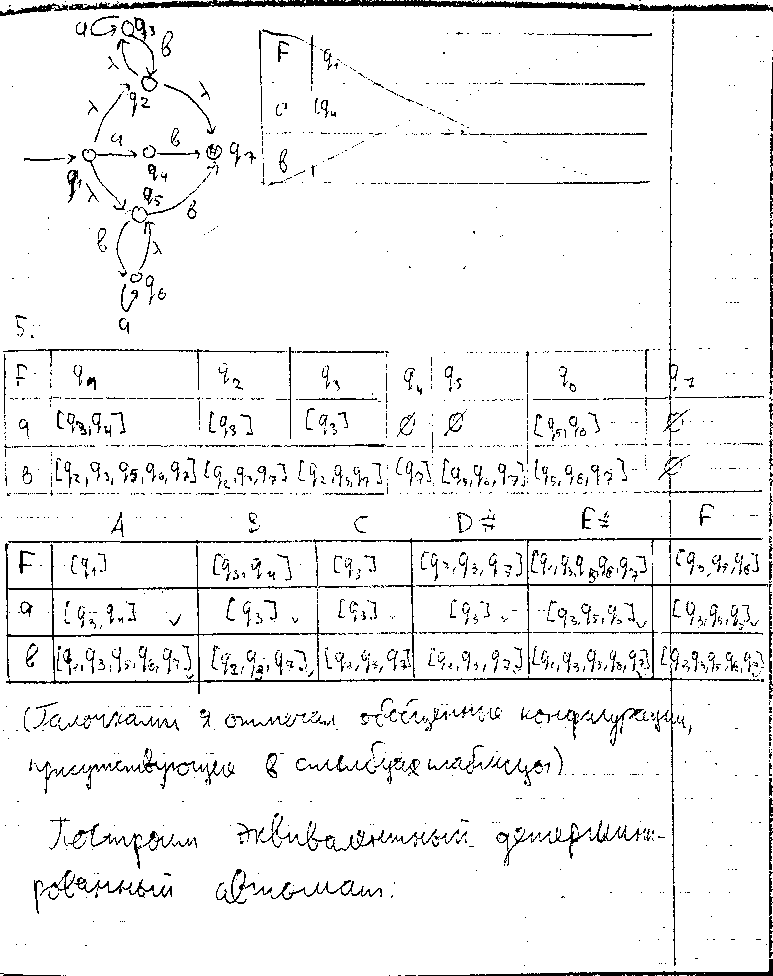 a q3 в
λ λ
q2
λ a в
q1 q4 q7
λ q5 в
в λ
q6
a
F q1
a [q4
в
5.
F q1 q2 q3 q4 q5 q6 q7
a [q3,q4] [q3] [q3] ∅ ∅ [q5,q6] ∅
в [q2,q3,q5,q6,q7] [q2,q3,q7] [q2,q3,q7] [q7] [q5,q6,q7] [q5,q6,q7] ∅
A B C D E F
F [q1] [q3,q4] [q3] [q2,q3,q7] [q2,q3,q5,q6,q7] [q3,q5,q6]
a [q3,q4] [q3] [q3] [q3] [q3,q5,q6]
в [q2,q3,q5,q6,q7] [q2,q3,q7] [q2,q3,q7] [q2,q3,q7] [q2,q3,q5,q6,q7] [q2,q3,q5,q6,q7]
(Галочками я отмечал обобщенные конфигурации,
присутствующие в столбцах таблицы)
Построим эквивалентный детермини-
рованный автомат: